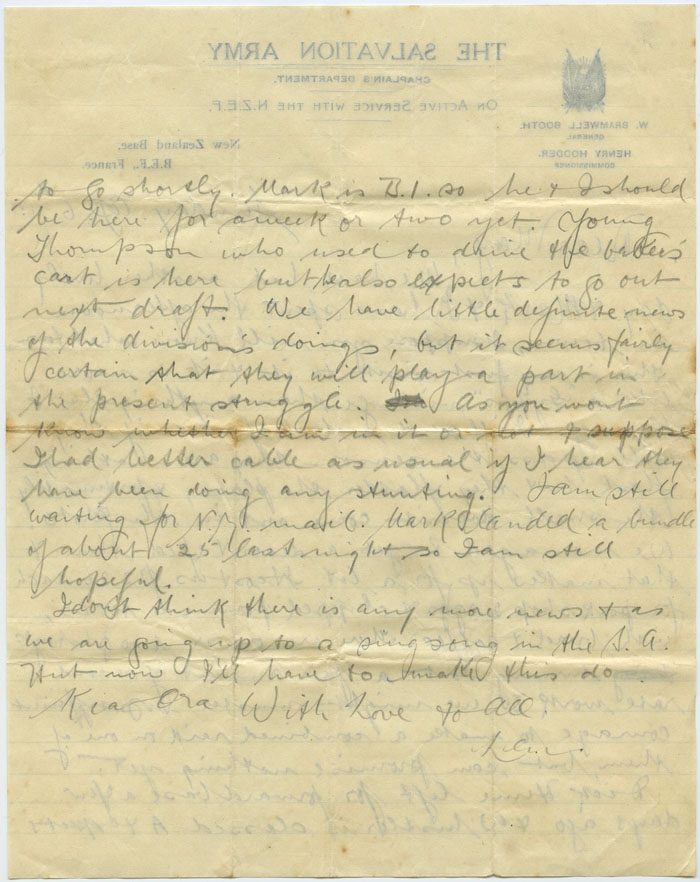 THE SALVATION ARMY
CHAPLAIN'S DEPARTMENT.
ON ACTIVE SERVICE WITH THE N.Z.E.F.
W. BRAMWELL BOOTH.
GENERAL
HENRY HODDER.
COMMISSIONER
New Zealand Base.
B.E.F., France.
to go shortly. Mark is B.1. so he & I should
be here for a week or two yet. Young
Thompson who used to drive the baker's
cart is here but he also expects to go out
next draft. We have little definite news
of the division's doings, but it seems fairly
certain that they will play a part in
the present struggle. As you wont
know whether I am in it or not I suppose
I had better cable as usual if I hear they
have been doing any stunting. I am still
waiting for N.Z. mail. Mark landed a bundle
of about 25 last night so I am still
hopeful.
I dont think there is any more news & as
we are going up to a sing song in the S.A.
Hut now I'll have to make this do
Kia Ora With Love to All.